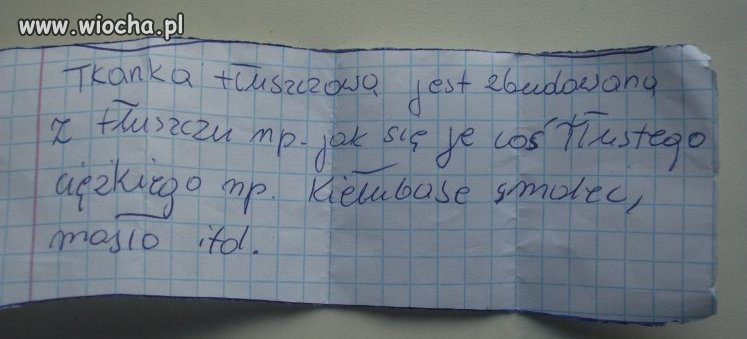 www.wiocha.pl
Tkanka tłuszczową jest zbudowaną
z tłuszczu np. jak się je coś Tłustego
ciężkiego np. Kiełubase smolec,
masło itd.